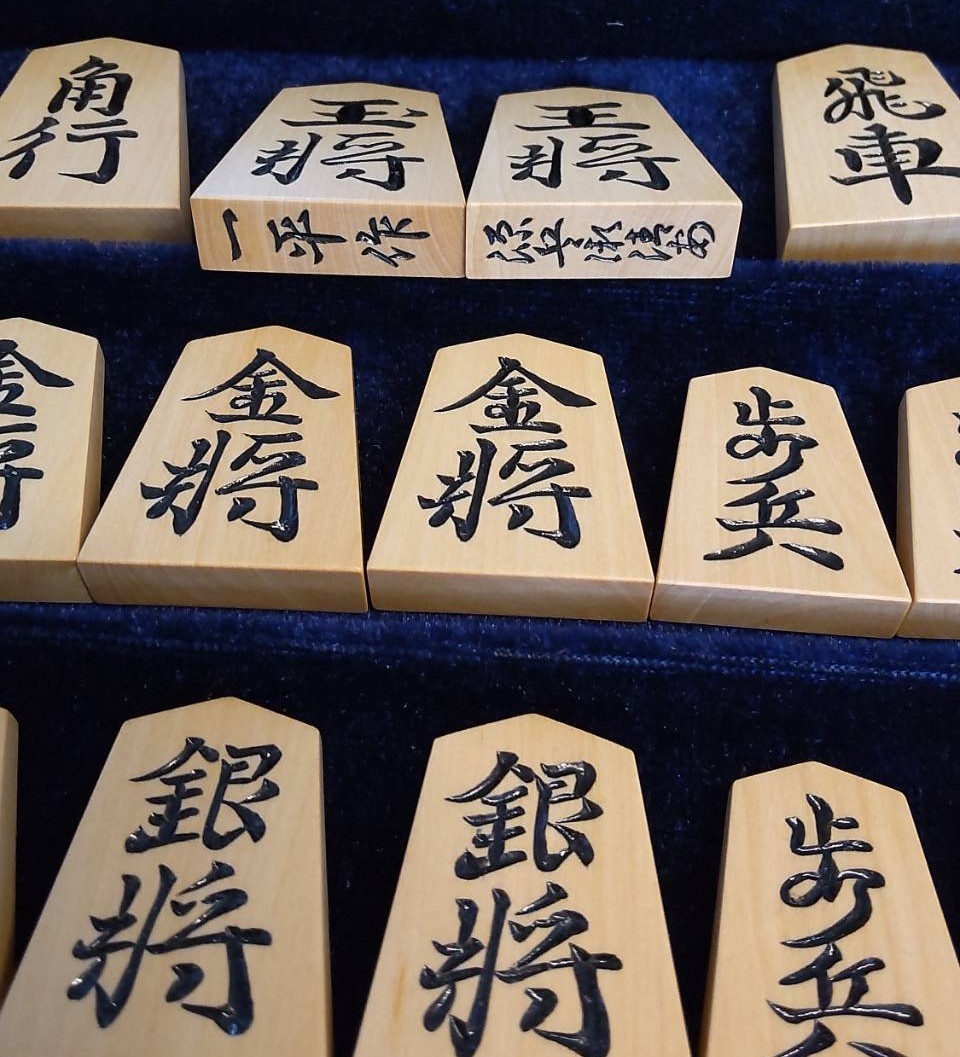 角行
玉将
王将
飛車
一平作
金将
金将
金将
歩兵
銀将
銀将
歩兵